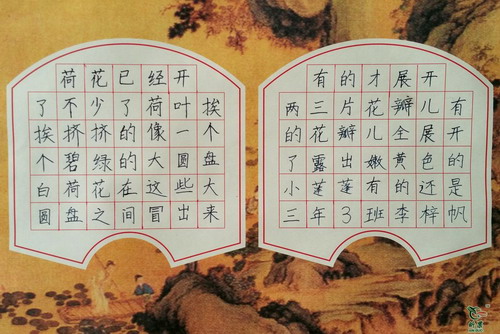 荷花已经开
了不少了荷叶挨
挨挤挤的像一个
个碧绿的大圆盘
白荷花在这些大
圆盘之间冒出来
有的才展开
两三片花瓣儿有
的花瓣儿全展开
了露出嫩黄色的
小莲蓬有的还是
三年3班李梓帆